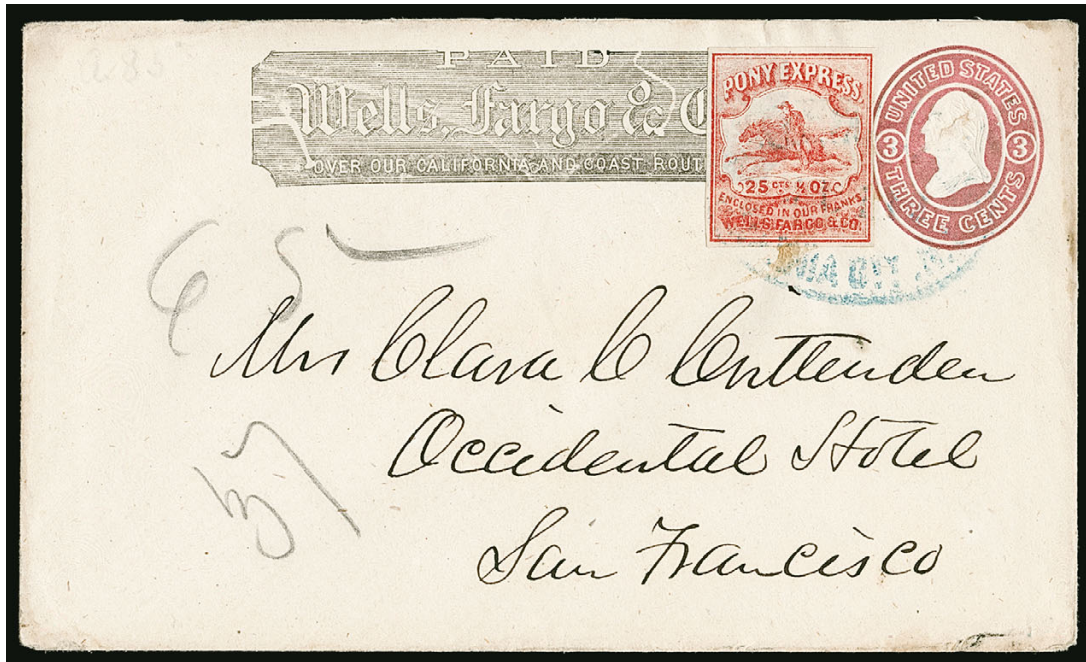 PAID
Wells, Fargo & C
OVER OUR CALIFORNIA AND COAST ROUT
PONY EXPRESS
25 CTS ½ OZ.
ENCLOSED IN OUR FRANKS
WELLS, FARGO & CO.
UNITED STATES
3 3
THREE CENTS
Mrs Clara C Crittenden
Occidental Hotel
San Francisco